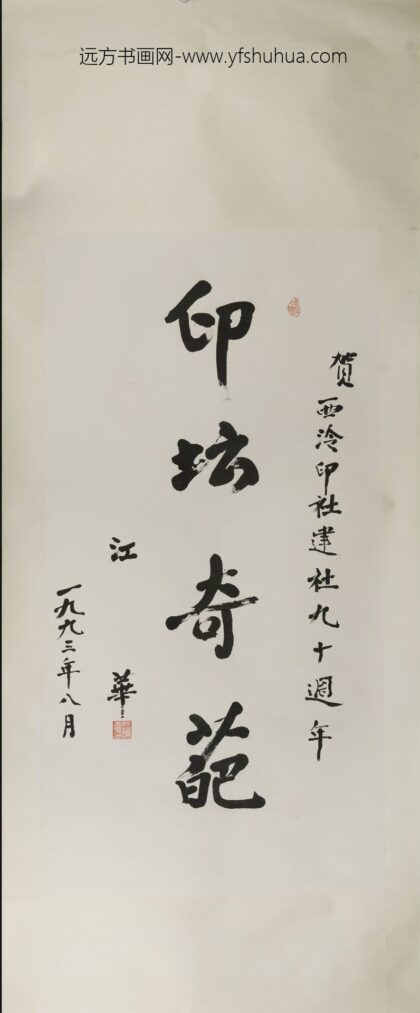 远方书画网-www.yfshuhua.com
賀西泠印社建社九十週年
印坛奇葩
江華
一九九三年八月